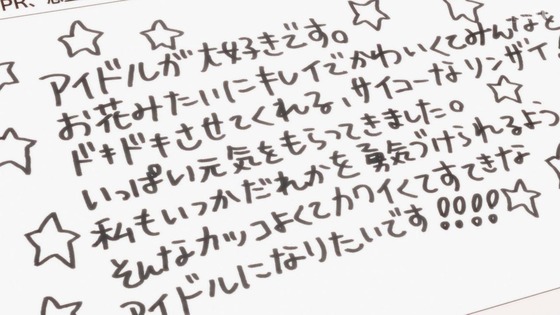 PR、志
アイドルが大好きです。
お花みたいにキレイでかわいくてみんなを
ドキドキさせてくれる、サイコーなリンザイ
いっぱい元気をもらってきました。
私もいつかだれかを勇気づけられるよう
そんなカッコよくてカワイくてすてきな
アイドルになりたいです!!!!